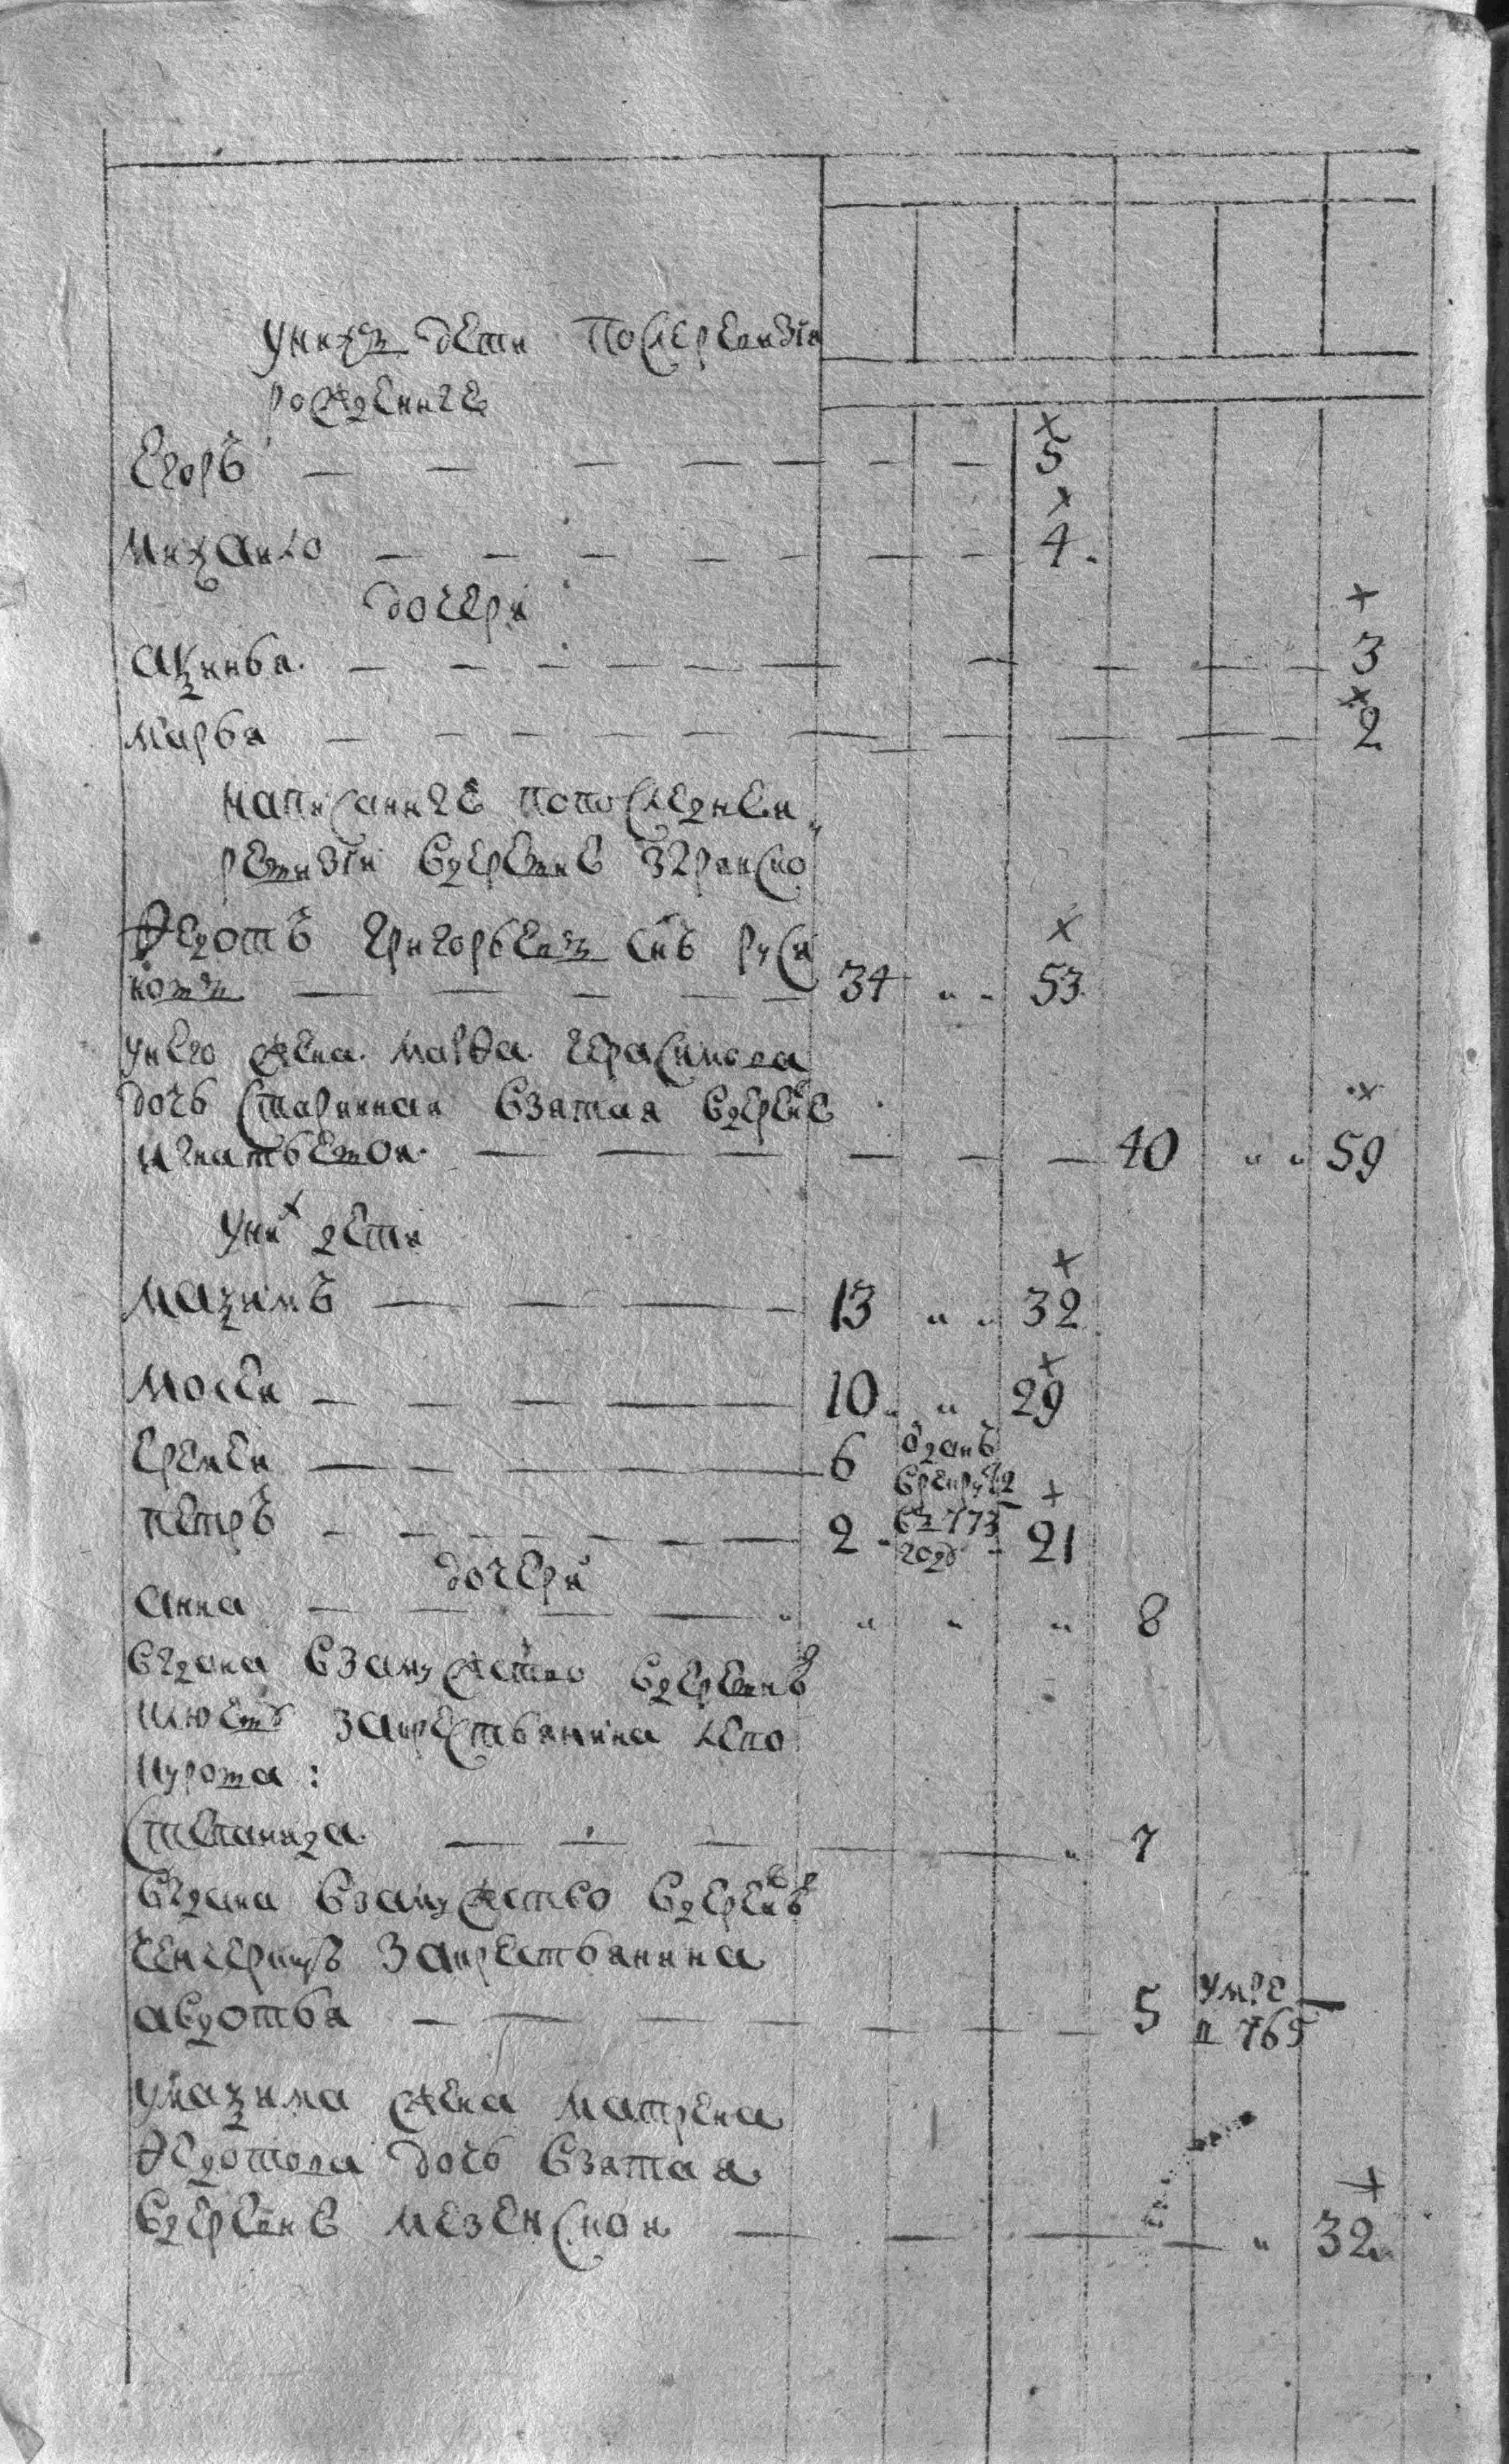 у нихъ дети после ревизiи
рожденные
Егоръ — — — 5
Михаило — — — 4.
дочери
Аксинья — — — 3
Марья — — — 2
написанные по последней
ревизiи в деревне
Федотъ Григорьевъ снъ
34 „ „ 53
у него жена Марфа Герасимова
дочь старинная взятая в дервне
Игнатьевой — — — 40 „ „ 59
у них дети
Максимъ — — — 13 „ „ 32
Мосей — — — 10 „ 29
Еремей — — — 6 отданъ в рекруты
Петръ — — — 2 въ 773 годе 21
дочери
Анна — — — „ „ „ „ 8
выдана в замужство в деревню
за крестьянина
Степанида — — — „ 7
выдана в замужство в деревню
за крестьянина
Авдотья — — — 5 умре в 765
у Максима жена Матрена
Федотова дочь взятая
в деревне Мезенской — — — „ 32